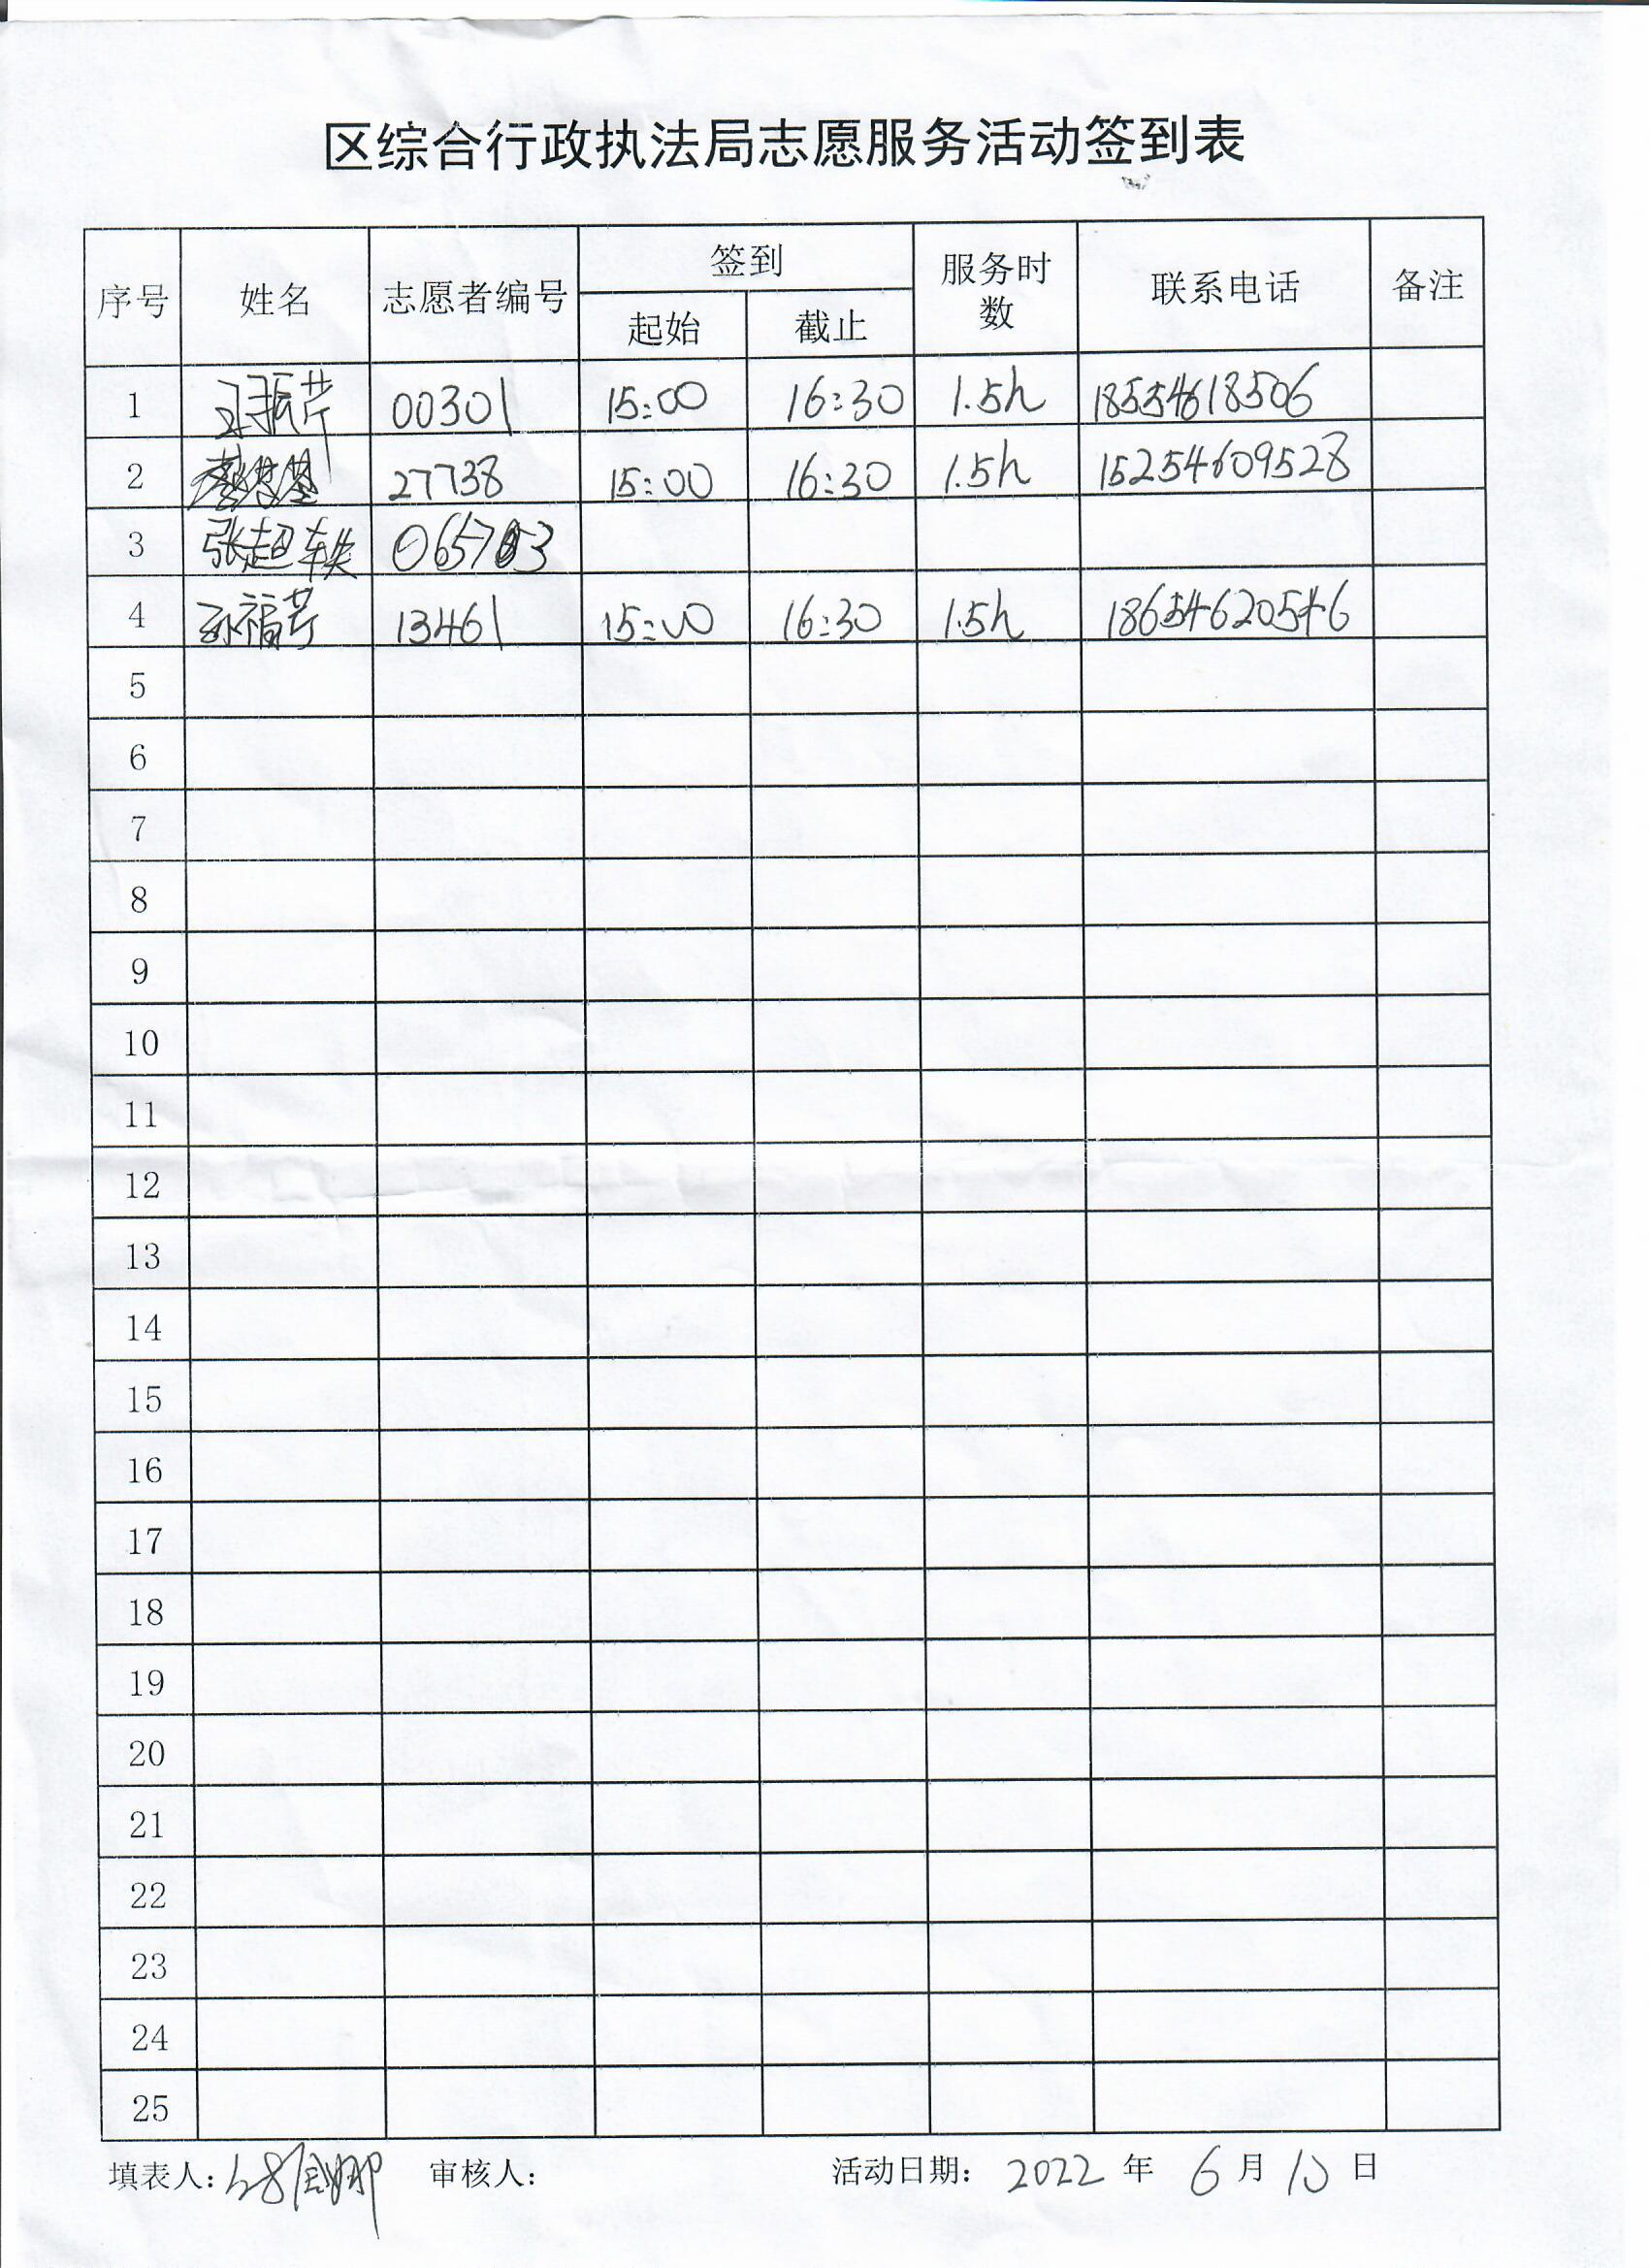 区综合行政执法局志愿服务活动签到表
序号 姓名 志愿者编号 签到 服务时数 联系电话 备注
起始 截止
1 振芹 00301 15:00 16:30 1.5h 18554618506
2 27738 15:00 16:30 1.5h 15254609528
3 张超轶
4 孙福芹 13461 15:00 16:30 1.5h 18654620546
5
6
7
8
9
10
11
12
13
14
15
16
17
18
19
20
21
22
23
24
25
填表人: 审核人: 活动日期: 2022 年 6 月 10 日